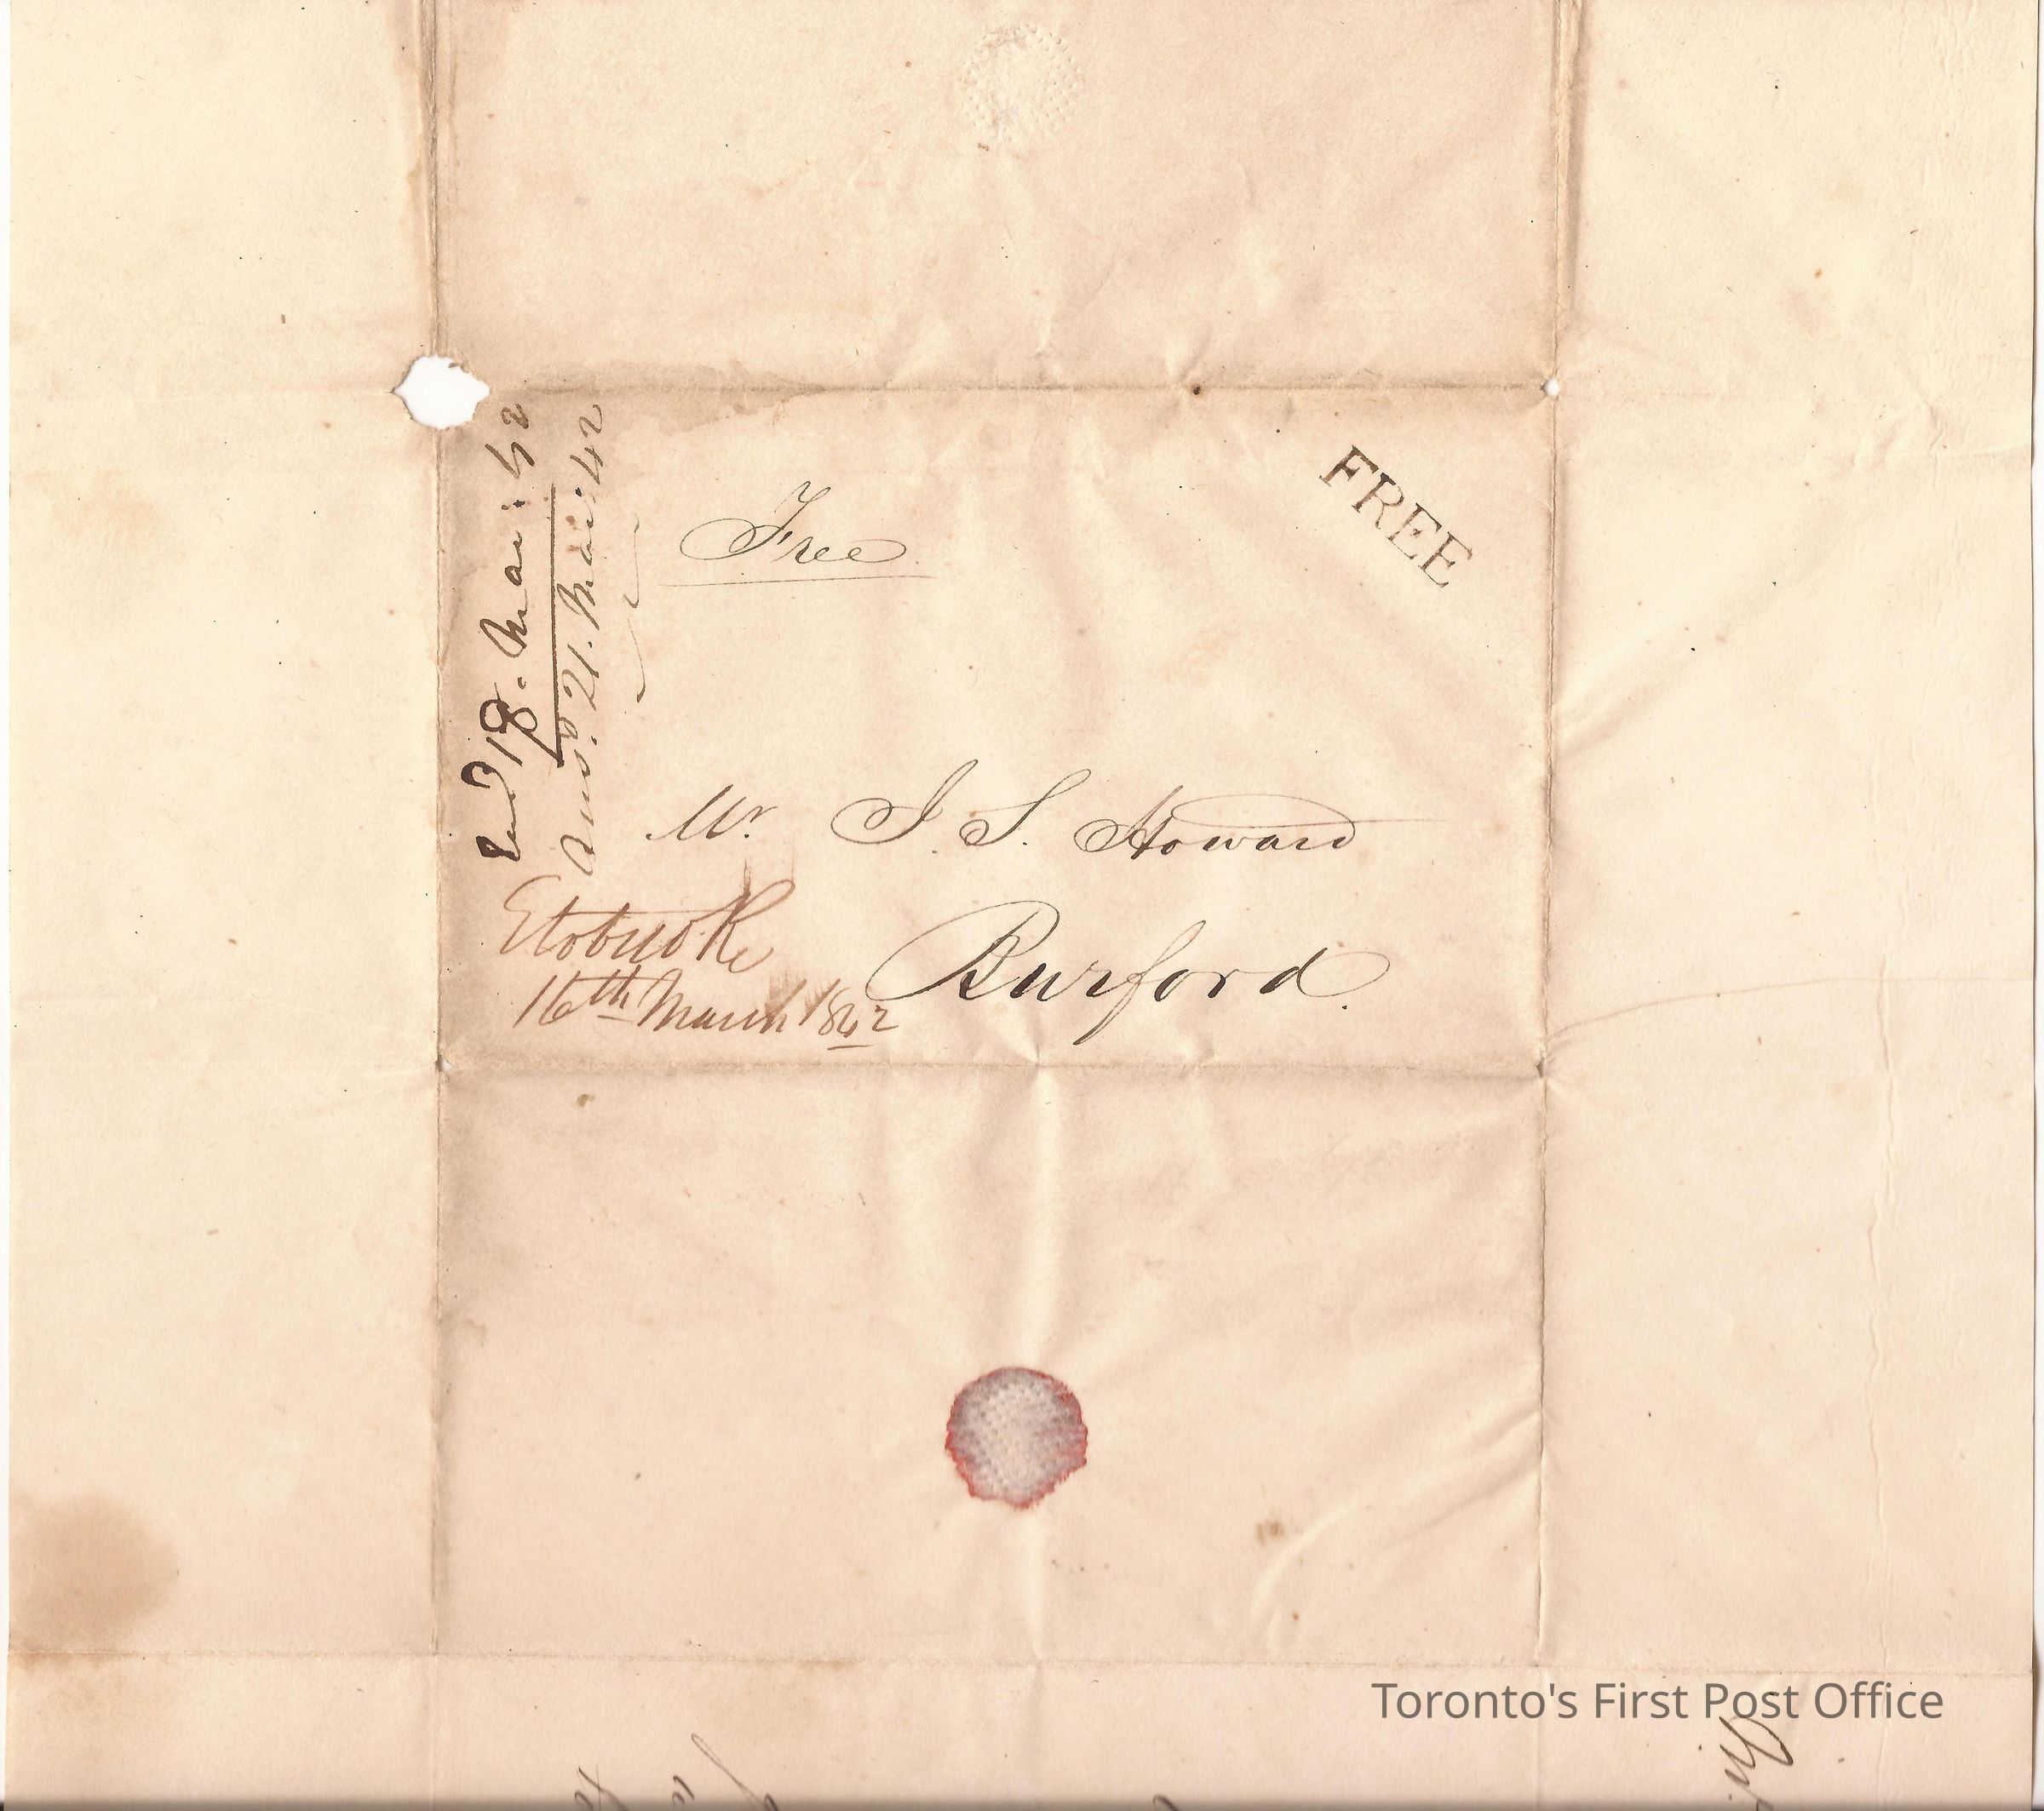 Free
FREE
Mr. J. S. Howard
Burford.
Etobicoke
16th March 1842
Recd 18. Mar: 42
Ansd. 21. Mar: 42
Toronto's First Post Office